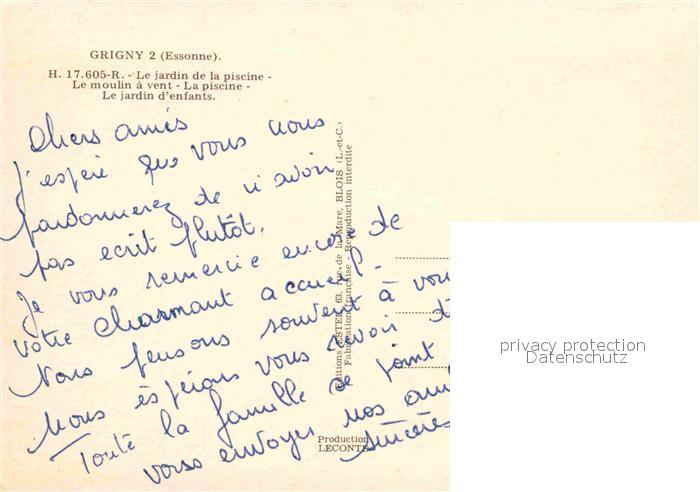 GRIGNY 2 (Essonne).
H. 17.605-R. - Le jardin de la piscine -
Le moulin à vent - La piscine -
Le jardin d'enfants.
Chers amis
J'espère que vous nous
pardonnerez de n'avoir
pas ecrit plutôt.
Je vous remercie encore de
votre charmant accueil.
Nous pensons souvent à vou
Nous éspérons vous revoir
Toute la famille se joint
vous envoyer nos ami
sincères
Editions ESTEL, 63, rue de la Mare, BLOIS (L.-et-C.)
Fabrication française - Reproduction interdite
Production
LECONTE
privacy protection
Datenschutz